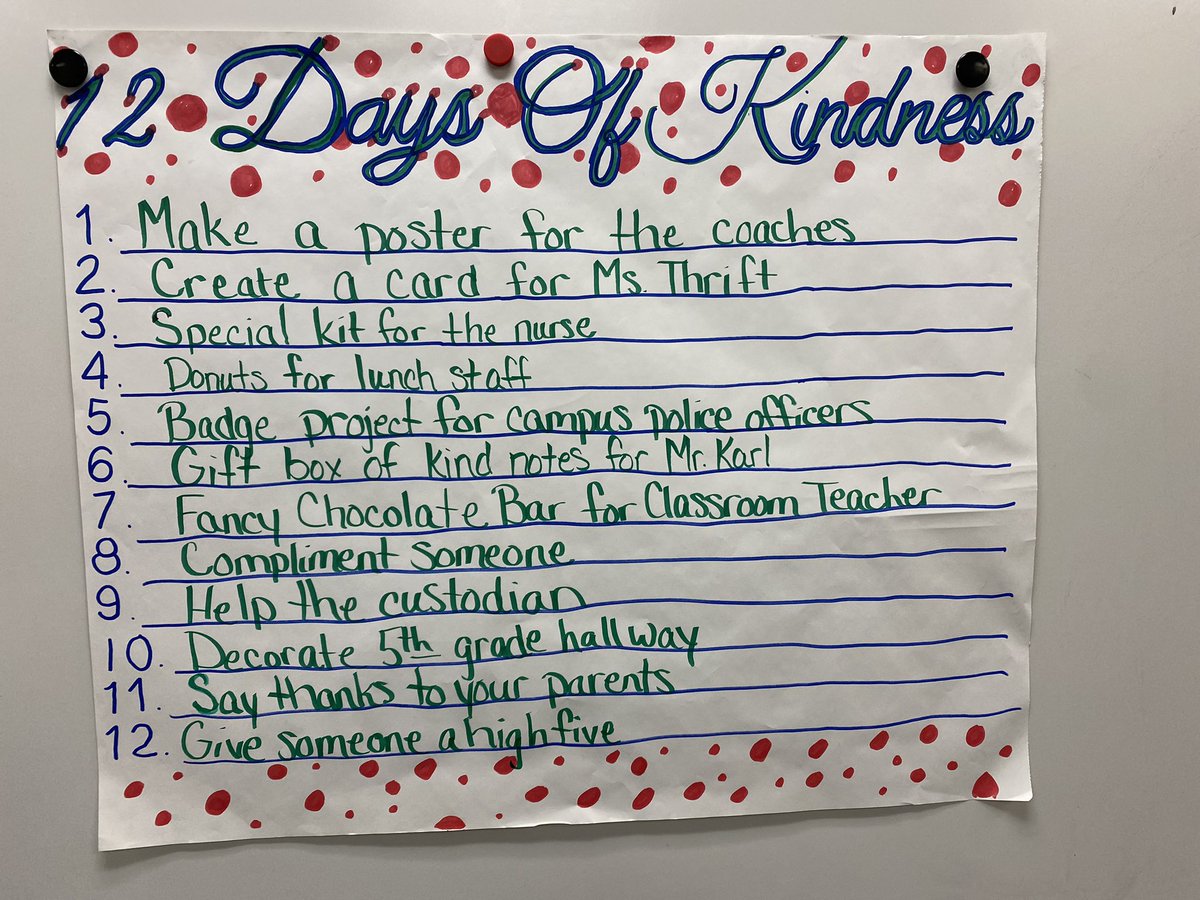 12 Days Of Kindness
1. Make a poster for the coaches
2. Create a card for Ms. Thrift
3. Special kit for the nurse
4. Donuts for lunch staff
5. Badge project for campus police officers
6. Gift box of kind notes for Mr. Karl
7. Fancy Chocolate Bar for Classroom Teacher
8. Compliment someone
9. Help the custodian
10. Decorate 5th grade hallway
11. Say thanks to your parents
12. Give someone a high five